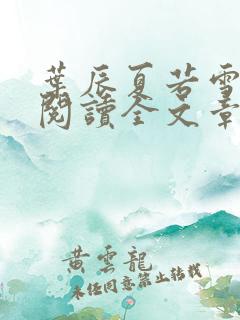 葉辰夏若雪
閱讀全文章
黃雲龍
未經同意禁止轉載